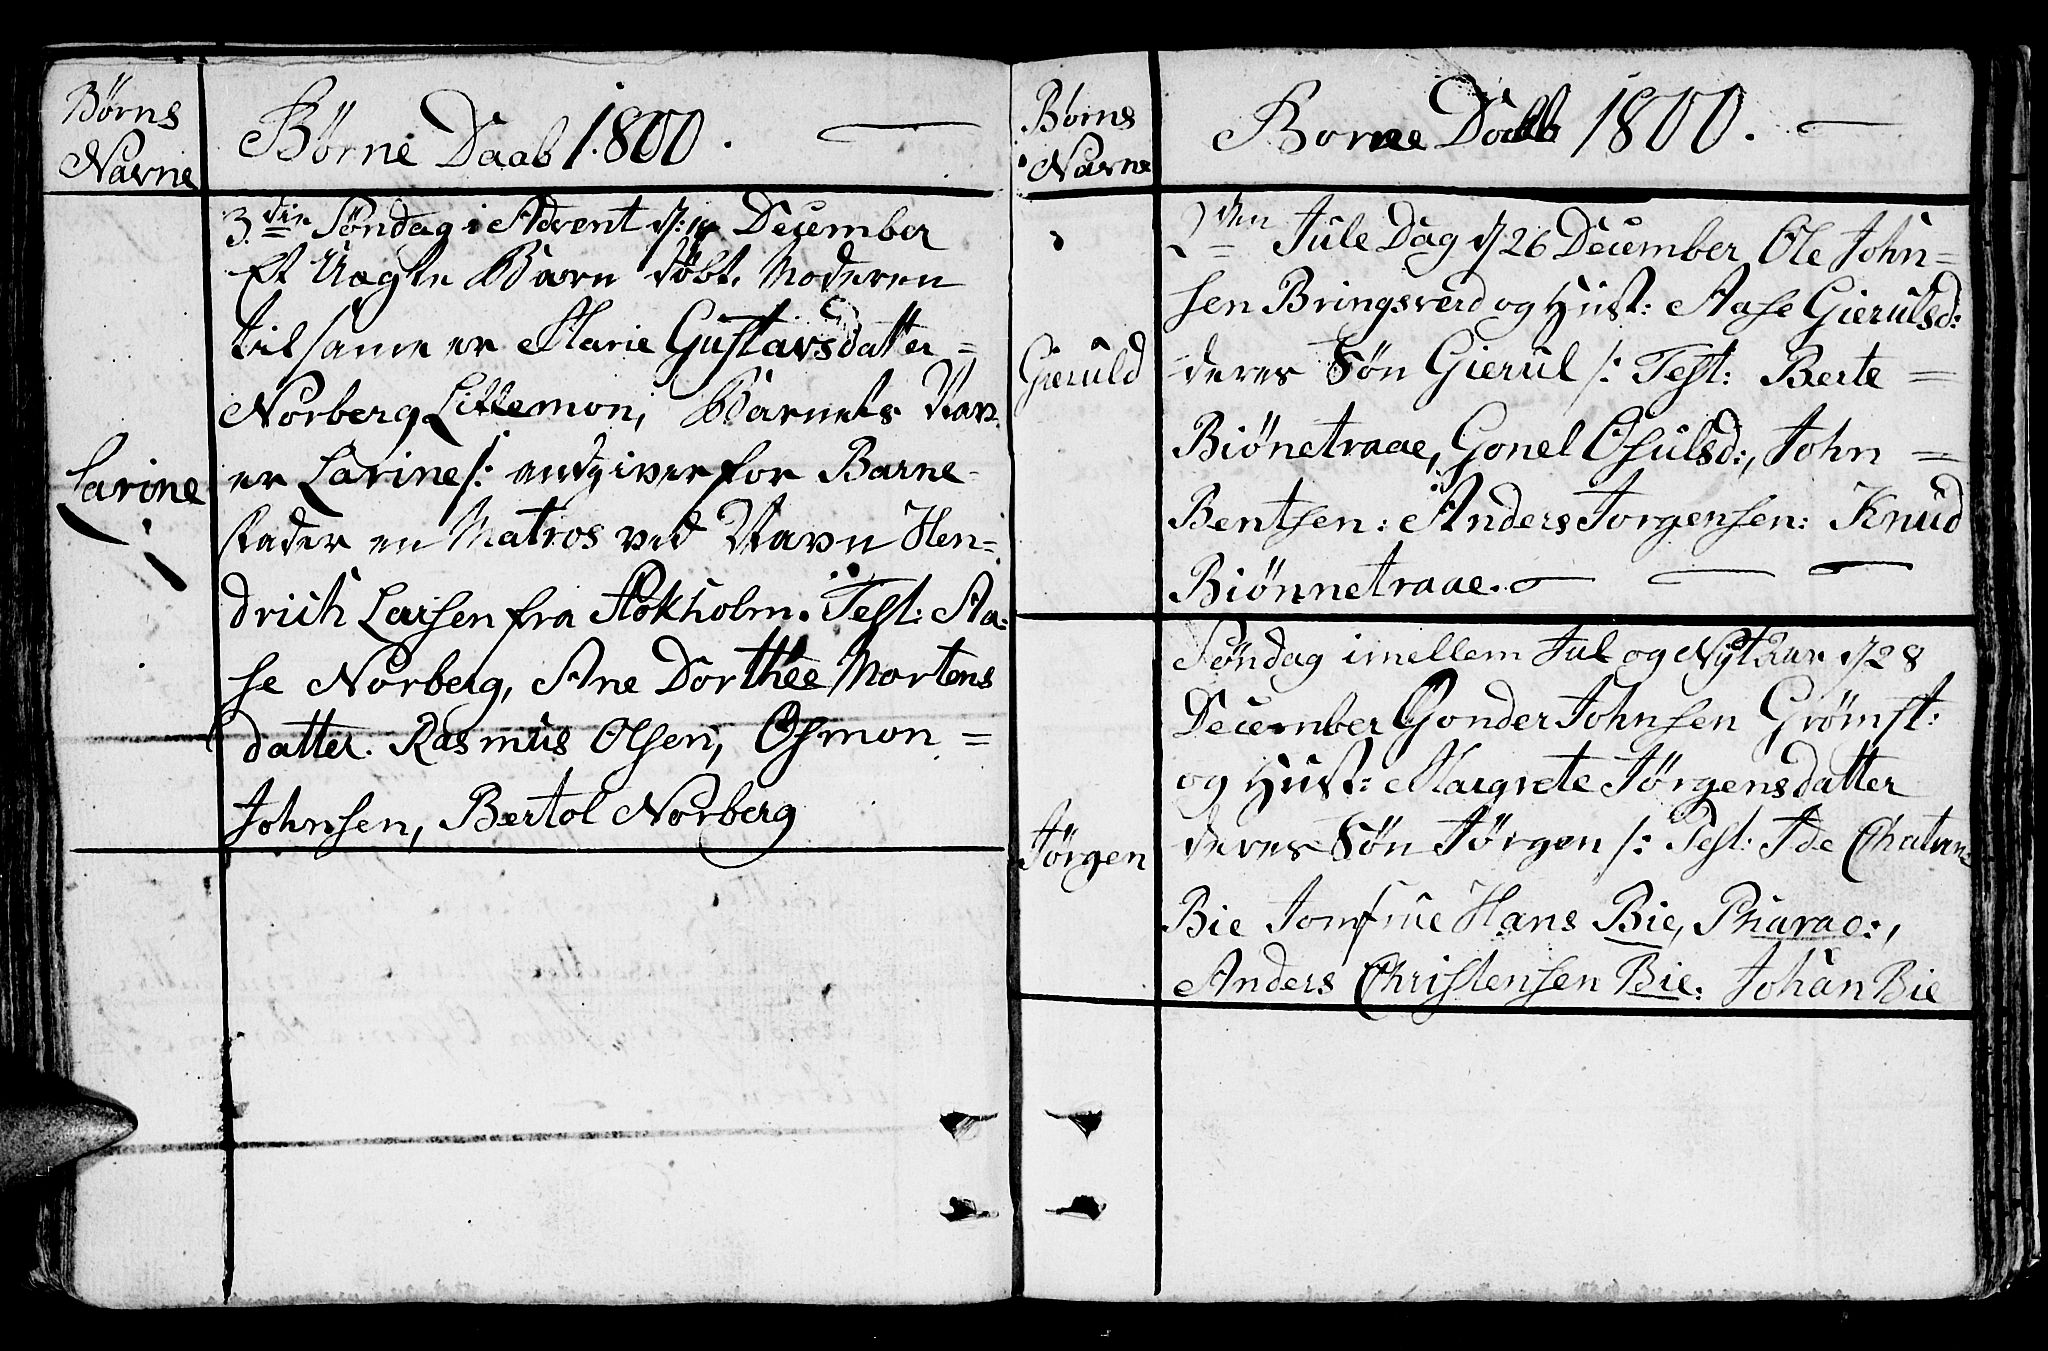 Børns
Navne
Børne Daab 1800.
3die Søndag i Advent d: 14 December
Et Uægte Barn døbt. Moderen
til samme er Marie Gustavsdatter =
Norberg Lillemon, Barnets Navn
Larine
er Larine /: udgiver for Barne-
fader en Matros ved Navn Hen-
drich Larsen fra Stokholm. Test: Aa-
se Norberg, Ane Dorthee Mortens
datter. Rasmus Olsen, Osmon =
Johnsen, Bertol Norberg
Børns
Navne
Borne Daab 1800.
2den Jule Dag d 26 December Ole John-
sen Bringsverd og Hust: Aase Gierulsd:
Gieruld
deres Søn Gierul /: Test: Berte =
Biønetraae, Gonel Osulsd:, John =
Bentsen: Anders Jorgensen: Knud
Biønnetraae.
Søndag imellem Jul og Nyt Aar d 28
December Gonder Johnsen Grømst:
og Hust: Margrete Jørgensdatter
Jørgen
deres Søn Jørgen /: Test: Ide Chatrine
Bie Jomfrue Hans Bie, Pharae:,
Anders Christensen Bie: Johan Bie